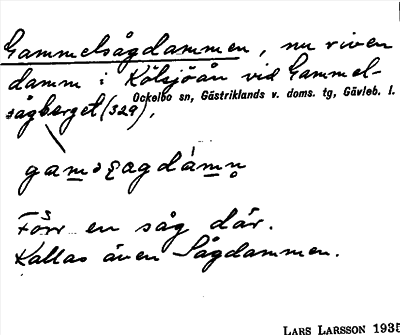 Gammelsågdammen, nu riven
damm i Kölsjöån vid Gammel-
Ockelbo sn, Gästriklands v. doms. tg, Gävleb. l.
sågberget (329).
Förr en såg där.
Kallas även Sågdammen.
LARS LARSSON 1935